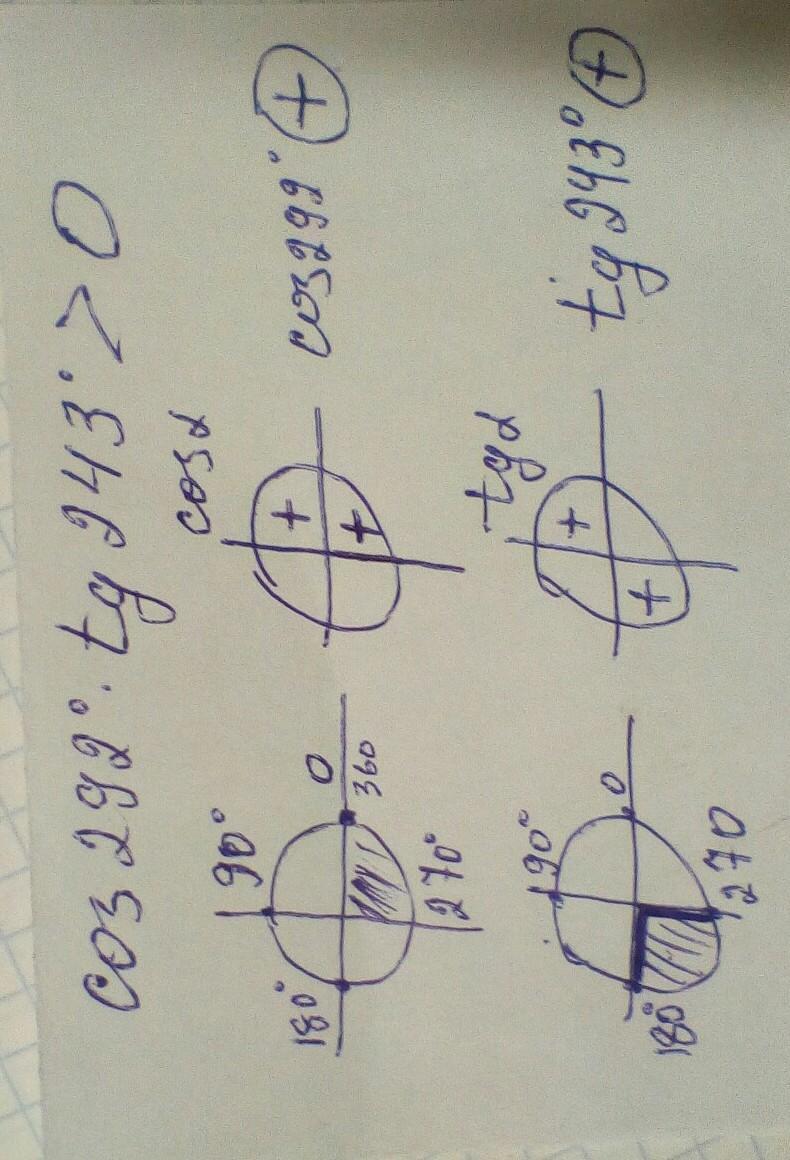 cos 292° · tg 243° > 0
90°
180°
0
360
270°
cos α
+
+
cos 292° +
90°
180°
0
270
tg α
+
+
tg 243° +